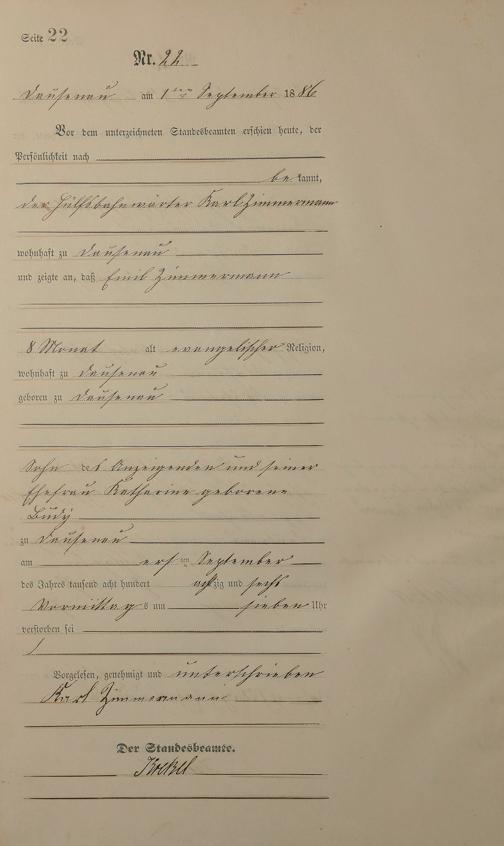 Seite 22
Nr. 22
Dausenau am 1ten September 1886
Vor dem unterzeichneten Standesbeamten erschien heute, der
Persönlichkeit nach
bekannt,
der Hülfsbahnwärter Karl Zimmermann
wohnhaft zu Dausenau
und zeigte an, daß Emil Zimmermann
8 Monat alt evangelischer Religion,
wohnhaft zu Dausenau
geboren zu Dausenau
Sohn des Anzeigenden und seiner
Ehefrau Katharine geborene
zu Dausenau
am ersten September
des Jahres tausend acht hundert achtzig und sechs
Vormittags um sieben Uhr
verstorben sei
Vorgelesen, genehmigt und unterschrieben
Karl Zimmermann
Der Standesbeamte.